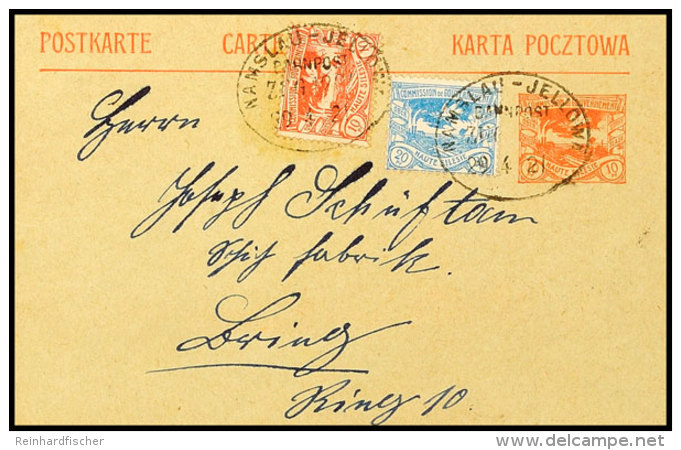 POSTKARTE CARTE KARTA POCZTOWA
NAMSLAU - JELLOWA
BAHNPOST
20 4 21
COMMISSION DE GOUVERNEMENT
HAUTE SILESIE
10
COMMISSION DE GOUVERNEMENT
HAUTE SILESIE
20
NAMSLAU - JELLOWA
BAHNPOST
20 4 21
GOUVERNEMENT
HAUTE SILESIE
10
Herrn
Joseph Schüftan
fabrik.
Brieg
Ring 10.
Reinhardfischer
www.delcampe.net